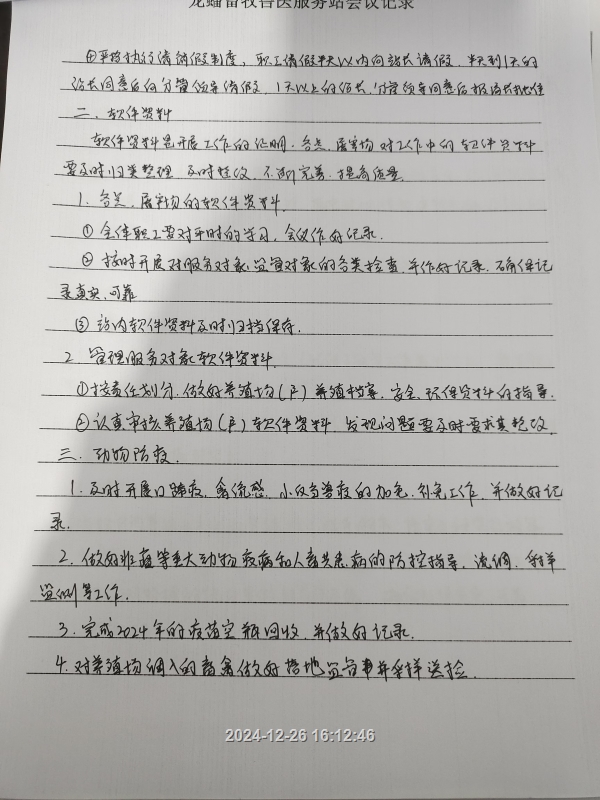 龙蟠畜牧兽医服务站会议记录
④严格执行请销假制度，职工请假半天以内向站长请假，半天到1天的
站长同意后向分管领导请假，1天以上的站长、分管领导同意后报局长批准
二、软件资料
软件资料是开展工作的证明，各点、屠宰场对工作中的软件资料
要及时归类整理，及时整改，不断完善，提高质量。
1、各点、屠宰场的软件资料。
①全体职工要对平时的学习、会议作好记录。
②按时开展对服务对象、监管对象的各类检查，并作好记录，确保记
录真实、可靠
③站内软件资料及时归档保存。
2、管理服务对象软件资料。
①按责任划分，做好养殖场(户)养殖档案、安全、环保资料的指导。
②认真审核养殖场(户)软件资料，发现问题要及时要求其整改。
三、动物防疫。
1、及时开展口蹄疫、禽流感、小反刍兽疫的加免、补免工作，并做好记
录。
2、做好非瘟等重大动物疫病和人畜共患病的防控指导、流调、采样
监测等工作。
3、完成2024年的疫苗空瓶回收，并做好记录。
4、对养殖场调入的畜禽做好落地监管事并采样送检。
2024-12-26 16:12:46